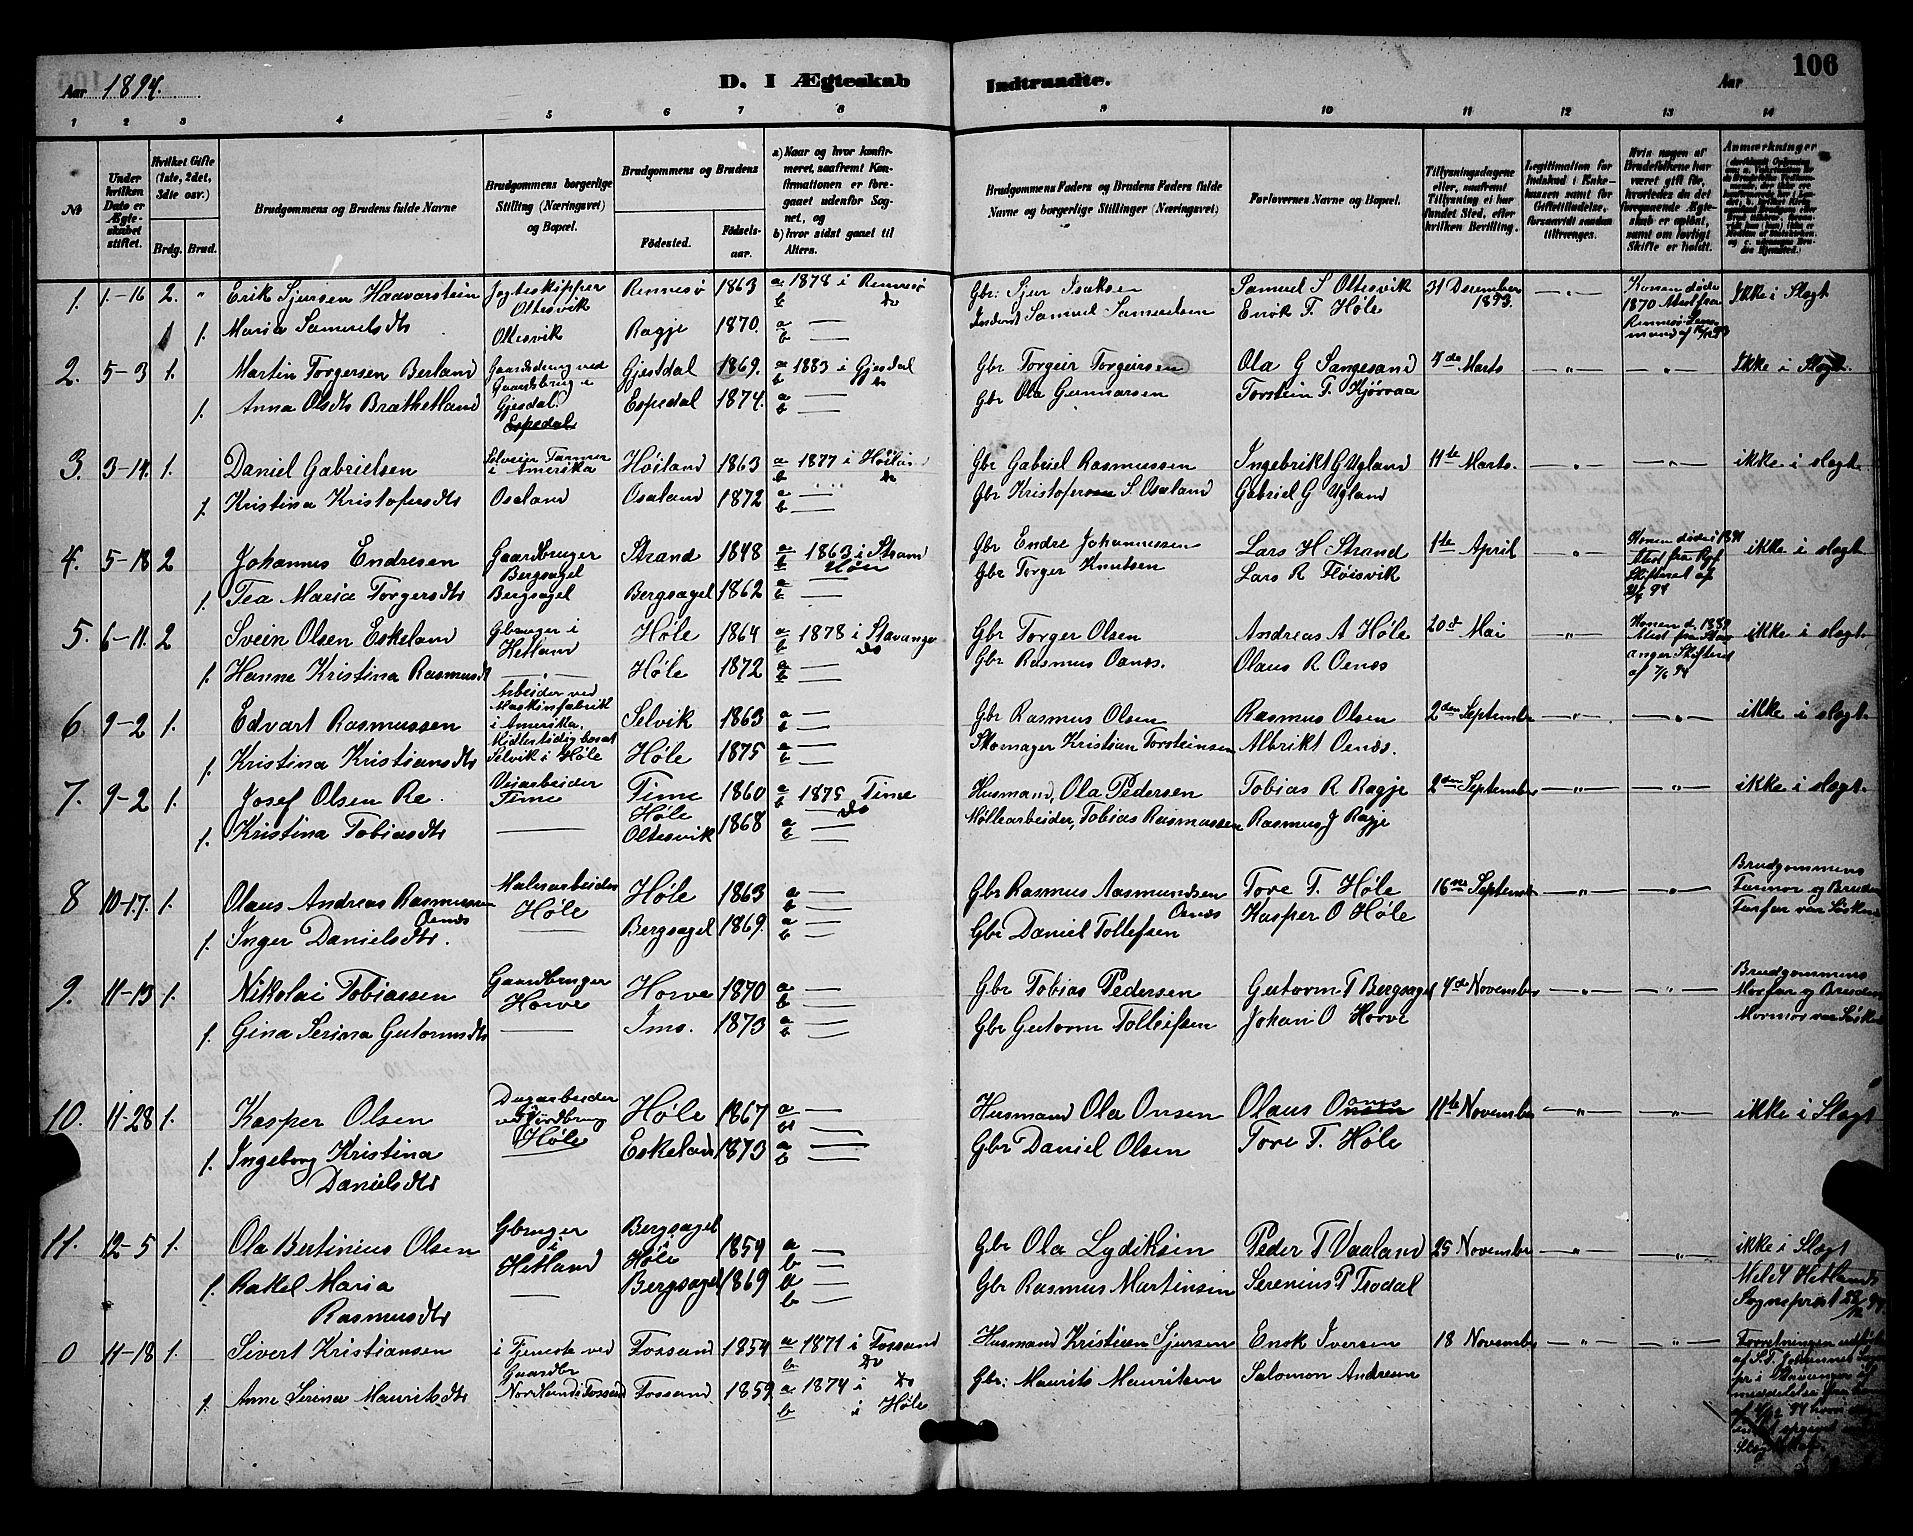 Aar 1894.
D. I Ægteskab Indtraadte.
Aar 106
1 2 3 4 5 6 7 8 9 10 11 12 13 14
№
Under hvilken Dato er Ægteskabet stiftet.
Hvilket Gifte (1ste, 2det, 3die osv.)
Brdg. Brud.
Brudgommens og Brudens fulde Navne
Brudgommens borgerlige Stilling (Næringsvei) og Bopæl.
Brudgommens og Brudens
Fødested. Fødselsaar.
a) Naar og hvor konfirmeret, saafremt Konfirmationen er foregaaet udenfor Sognet, og
b) hvor sidst gaaet til Alters.
Brudgommens Faders og Brudens Faders fulde Navne og borgerlige Stillinger (Næringsvei)
Forlovernes Navne og Bopæl.
Tillysningsdagene eller, saafremt Tillysning ei har fundet Sted, efter hvilken Bevilling.
Legitimation for Indskud i Enkekassen samt for Giftetilladelse, forsaavidt saadan tiltrænges.
Hvis nogen af Brudefolkene har været gift før, hvorledes da det foregaaende Ægteskab er opløst, samt om lovligt Skifte er holdt.
Anmærkninger
1. 1-16 2. " Erik Sjursen Haavarstein Jagteskipper Oltesvik Rennesø 1863 a 1878 i Rennesø b do Gbr: Sjur Isaksen Samuel S Oltesvik 31 December 1893. —"— Konen døde 1870 Attest fra Rennesø Ikke i Slægt
1. Maria Samuelsdtr Oltesvik Ragje 1870. a — b — Inderst Samuel Samuelsen Enok T. Høle
2. 5-3 1. Martin Torgersen Berland Gaardsdreng ved Gaardsbrug i Gjesdal. Gjestdal 1869. a 1883 i Gjesdal b do Gbr Torgeir Torgeirsen Ola G Sangesand 4de Marts —"— —"— Ikke i Slægt.
1. Anna Olsdtr Brathetland Espedal Espedal 1874. a — b — Gbr Ola Gunnarsen Torstein T. Kjørvaa
3. 3-14. 1. Daniel Gabrielsen Selveier Farmer i Amerika Høiland 1863 a 1877 i Høiland b do Gbr Gabriel Rasmussen Ingebrikt G Ugland 11te Marts. —"— —"— ikke i slægt
1. Kristina Kristofersdtr Osaland Osaland 1872 a — b — Gbr Kristofer S. Osaland Gabriel G Ugland
4. 5-18 2 Johannes Endresen Gaardbruger Bergsagel Strand 1848 a 1863 i Strand b Høle Gbr Endre Johannessen Lars H Strand 1te April —"— Konen døde i 1891 Attest fra Ryf. Skifteret af 94 ikke i slægt
1. Tea Maria Torgersdtr Bergsagel Bergsagel 1862 a — b — Gbr Torger Knutsen Lars R Fløisvik
5. 6-11. 2 Svein Olsen Eskeland Gbruger i Hetland Høle 1864 a 1878 i Stavanger b do Gbr Torger Olsen Andreas A Høle 20de Mai —"— Konen d. 1889 Attest fra Stavanger Skifteret af 7/6 94 ikke i slægt
1. Hanne Kristina Rasmusdt —"— Høle 1872 a — b — Gbr Rasmus Oanes. Olaus R Oenæs
6 9-2 1. Edvart Rasmussen Arbeider ved Maskinfabrik i Amerika. Midlertidig bosat Selvik i Høle Selvik 1863 a — b — Gbr Rasmus Olsen Rasmus Olsen 2den September —"— —"— ikke i slægt
1. Kristina Kristiansdtr Høle 1875 a — b — Skomager Kristian Torsteinsen Albrikt Oenæs.
7. 9-2 1. Josef Olsen Re. Veiarbeider Time Time 1860 a 1875 Time b do Husmand, Ola Pedersen Tobias R Ragje 2den September —"— —"— ikke i slægt.
1. Kristina Tobiasdtr — Høle Oltesvik 1868 a — b — Møllearbeider, Tobias Rasmussen Rasmus J Ragje
8 10-17. 1. Olaus Andreas Rasmussen Oenæs Malerarbeider Høle Høle 1863 a — b — Gbr Rasmus Aasmundsen Oenæs Tore T. Høle 16ne September —"— —"— Brudgommens Farmor og Brudens Farfar var Søskende
1. Inger Danielsdtr. — Bergsagel 1869. a — b — Gbr Daniel Tollefsen Kasper O Høle
9. 11-13 1. Nikolai Tobiassen Gaardbruger Horve Horve 1870 a — b — Gbr Tobias Pedersen Gutorm T Bergsagel 4de November —"— —"— Brudgommens Morfar og Brudens Mormor var Søskende
1. Gina Serina Gutormsdtr — Ims. 1873 a — b — Gbr Gutorm Tolleifsen Johan O Horve
10. 11-28 1. Kasper Olsen Dagarbeider ved Jordbrug Høle Høle 1867 a — b — Husmand Ola Onsen Olaus Oanes 11te November —"— —"— ikke i Slægt
1. Ingeborg Kristina Danielsdtr Eskeland 1873 a — b — Gbr Daniel Olsen Tore T. Høle
11. 12-5 1. Ola Bertinius Olsen Gbruger i Hetland Bergsagel i Høle 1854 a — b — Gbr Ola Lydiksen Peder T Vaaland 25 November —"— —"— ikke i Slægt Meldt Hetlands Sogneprest
1. Rakel Maria Rasmusdtr — Bergsagel 1869 a — b — Gbr Rasmus Martinsen Serenius P Frodal
0 11-18 1. Sivert Kristiansen i Tjeneste ved Gaardbr Fossand 1854 a 1871 i Fossand b do Husmand Kristian Sjursen Enok Iversen 18 November —"— —"— Forretningen udført af S.P. Johannes i Stavanger
1. Anne Serina Mauritsdtr Nordland i Fossand Fossand 1859 a 1874 i do b i Høle Gbr: Maurits Mauritsen Salomon Andersen